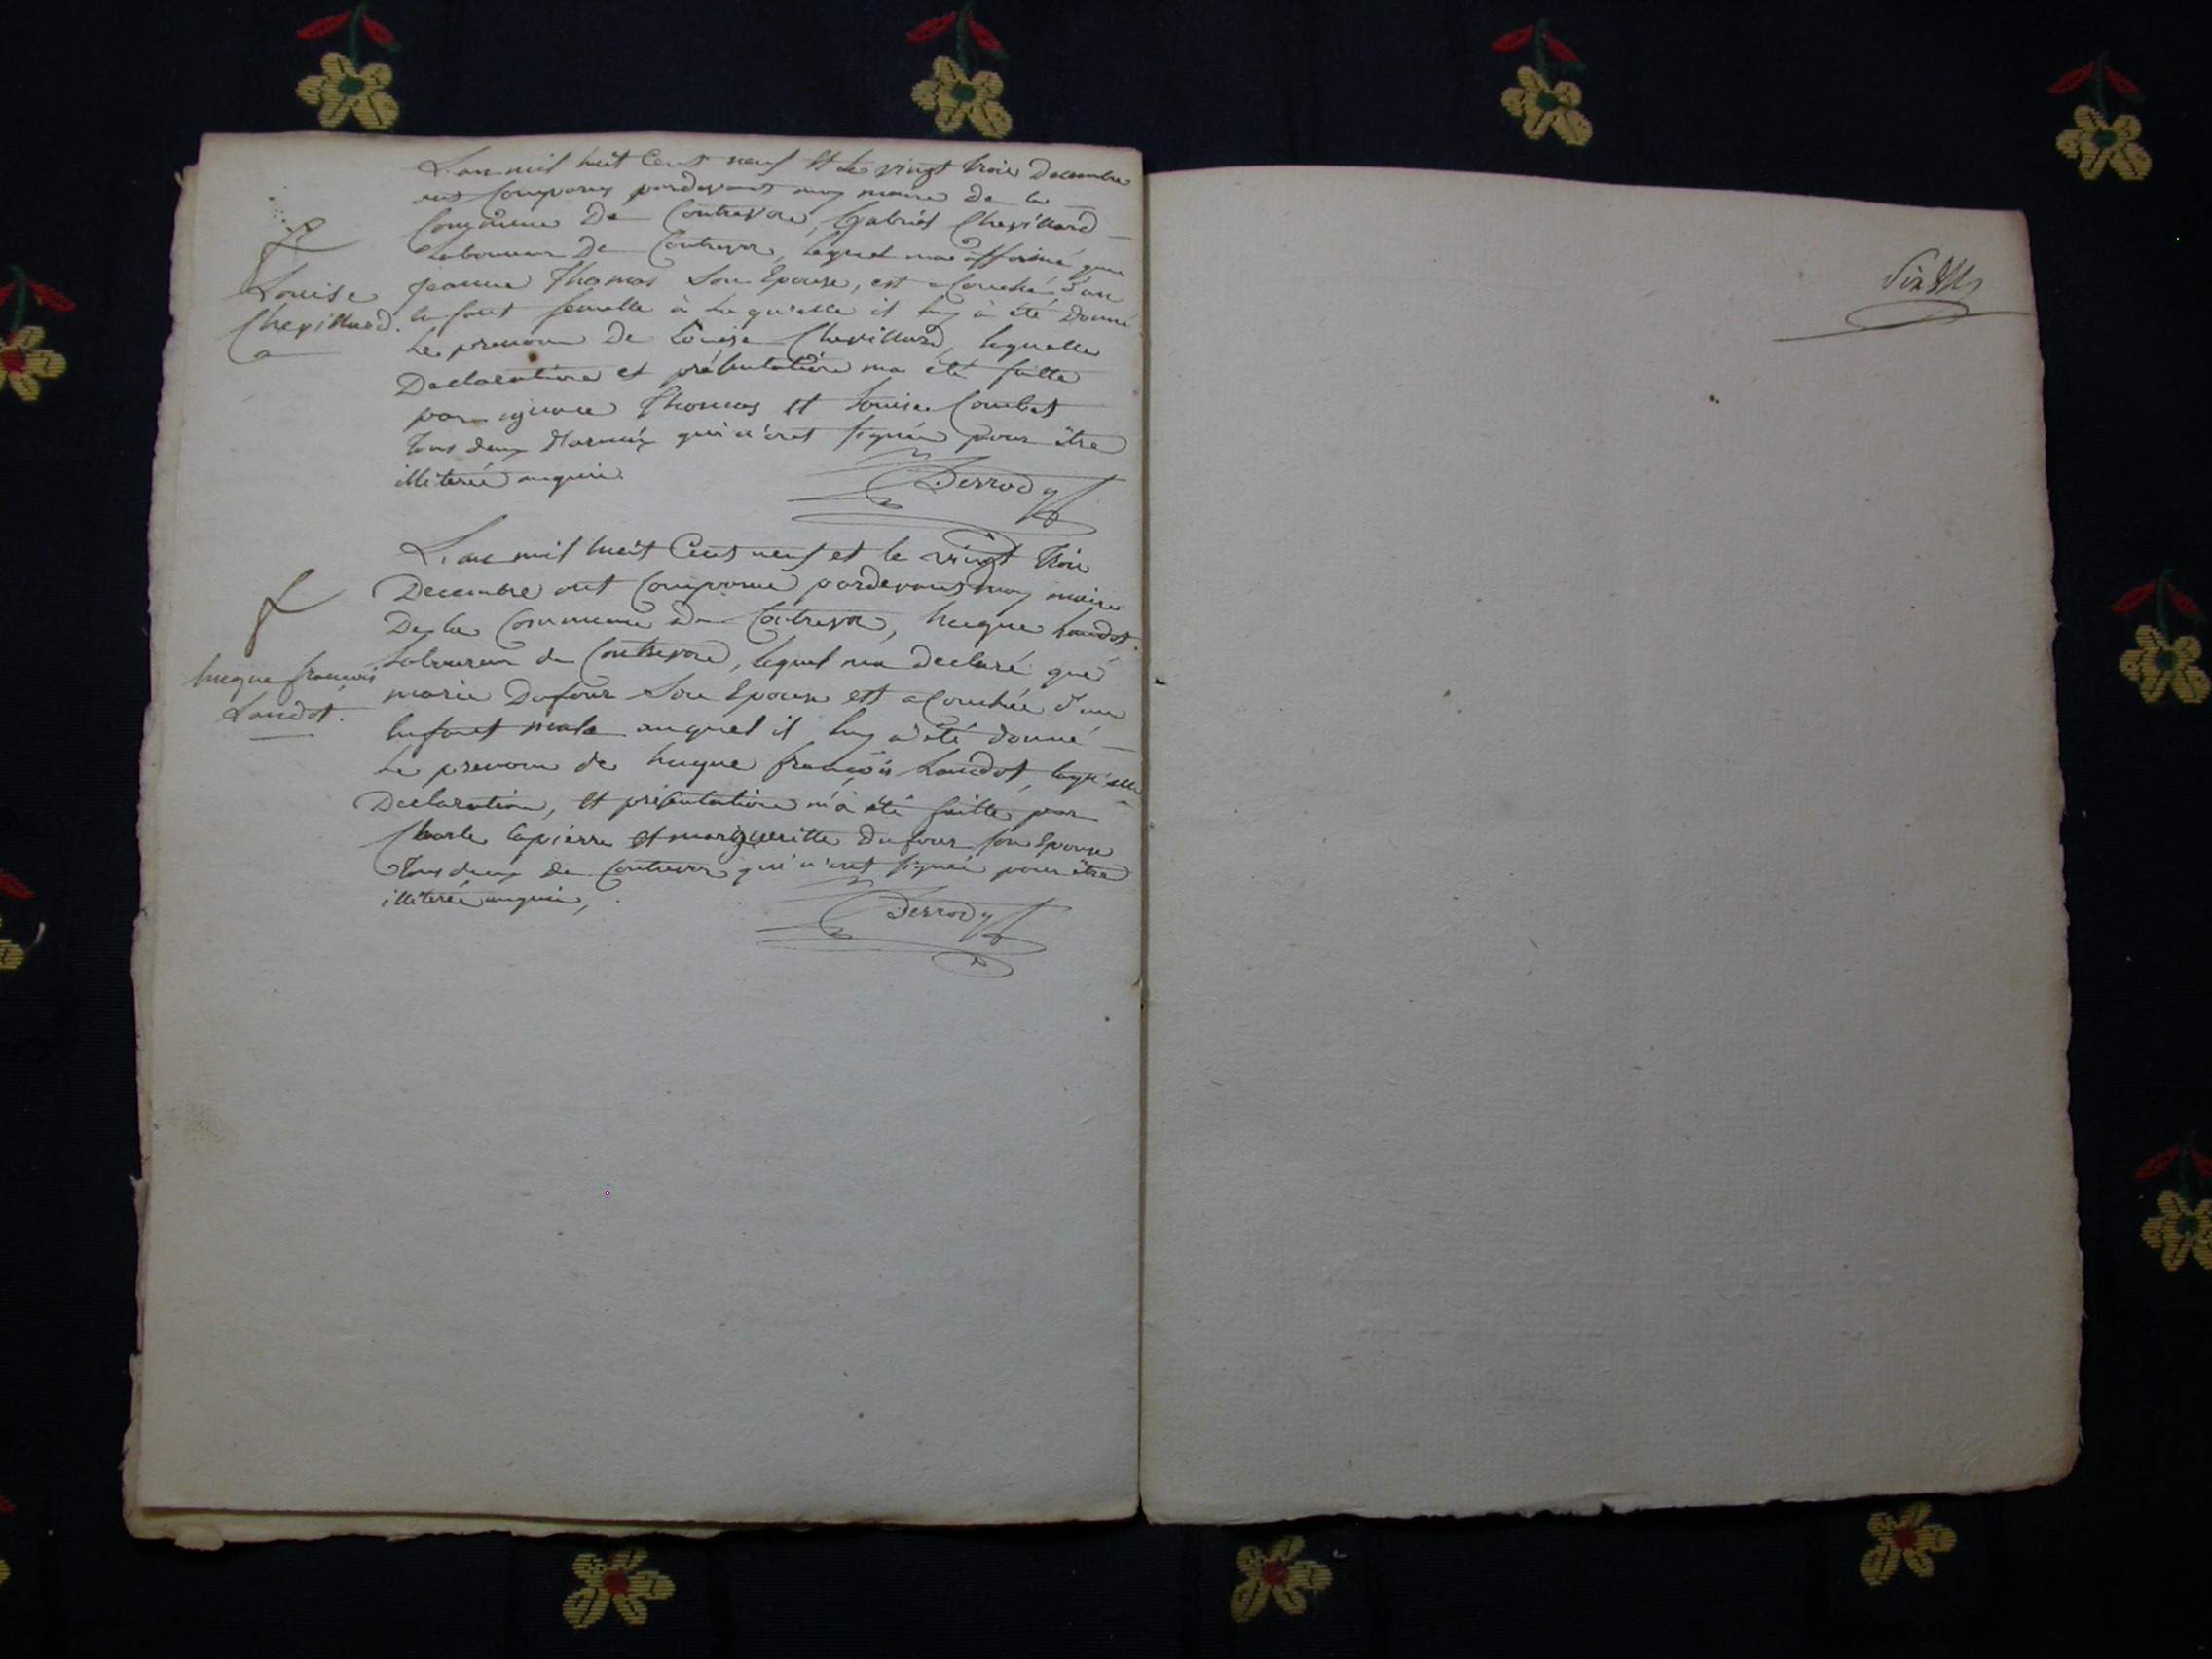 L'an mil huit Cent neuf et le vingt trois Decembre
ont Comparus pardevant moy maire de la
Commune De Contrevoz, Gabriel Chevillard
Laboureur De Contrevoz, lequel m'a affirmé que
Louise
Chevillard.
jeanne Thomas Son Epouse, est acouché d'un
enfant femelle à laqu'elle il luy à été Donné
Le prenom De Louise Chevillard, laquelle
Declaration et présentation m'a été faitte
par Thomas et Louise Combet
Tous deux qui n'ont signés pour être
illiterés enquis.
Derrod
L'an mil huit Cent neuf et le vingt trois
Decembre ont Comparus pardevant moy maire
De la Commune De Contrevoz, hugue Landot
Laboureur de Contrevoz, lequel m'a declaré que
hugue françois
Landot.
marie Dufour Son Epouse est acouchée d'un
enfant male auquel il luy a été donné
Le prenom de hugue françois Landot, laqu'elle
Declaration, et présentation m'à été faitte par
Charle Lapierre et margueritte Dufour son Epouse
Tous deux de Contrevoz qui n'ont signés pour être
illiterés enquis,
Derrod